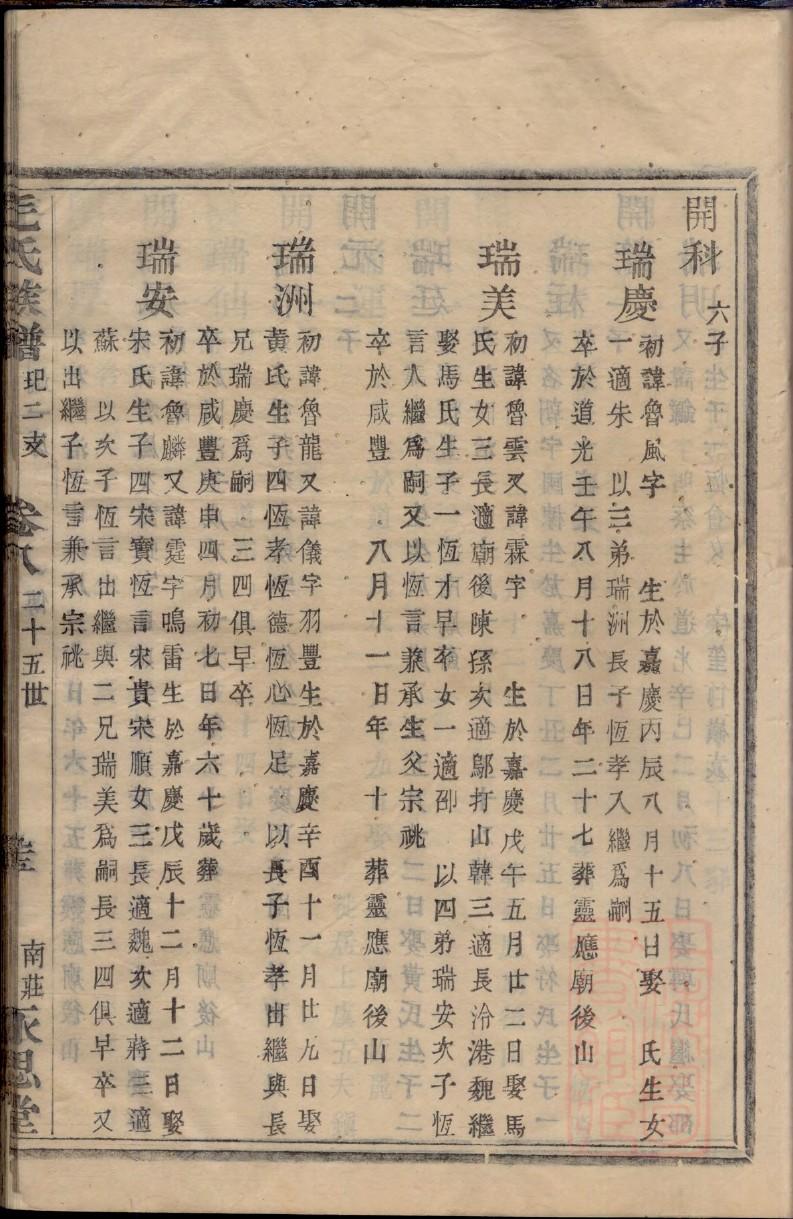 開科 六子
瑞慶 初諱魯風字 生於嘉慶丙辰八月十五日娶 氏生女
一適朱 以三弟瑞洲長子恆孝入繼爲嗣
卒於道光壬午八月十八日年二十七葬靈應廟後山
瑞美 初諱魯雲又諱霖字 生於嘉慶戊午五月廿二日娶馬
氏生女三長適廟後陳孫次適鄔打山韓三適長泠港魏繼
娶馬氏生子一恆才早卒女一適邵 以四弟瑞安次子恆
言入繼爲嗣又以恆言兼承生父宗祧
卒於咸豐 八月十一日年 十 葬靈應廟後山
瑞洲 初諱魯龍又諱儀字羽豐生於嘉慶辛酉十一月廿九日娶
黃氏生子四恆孝恆德恆心恆足 以長子恆孝出繼與長
兄瑞慶爲嗣 三四俱早卒
卒於咸豐庚申四月初七日年六十歲葬
瑞安 初諱魯麟又諱霆字鳴雷生於嘉慶戊辰十二月十二日娶
宋氏生子四宋寶恆言宋貴宋順女三長適魏次適蔣三適
蘇 以次子恆言出繼與二兄瑞美爲嗣長三四俱早卒又
以出繼子恆言兼承宗祧
毛氏族譜 圯二支 卷八 二十五世 南莊永思堂